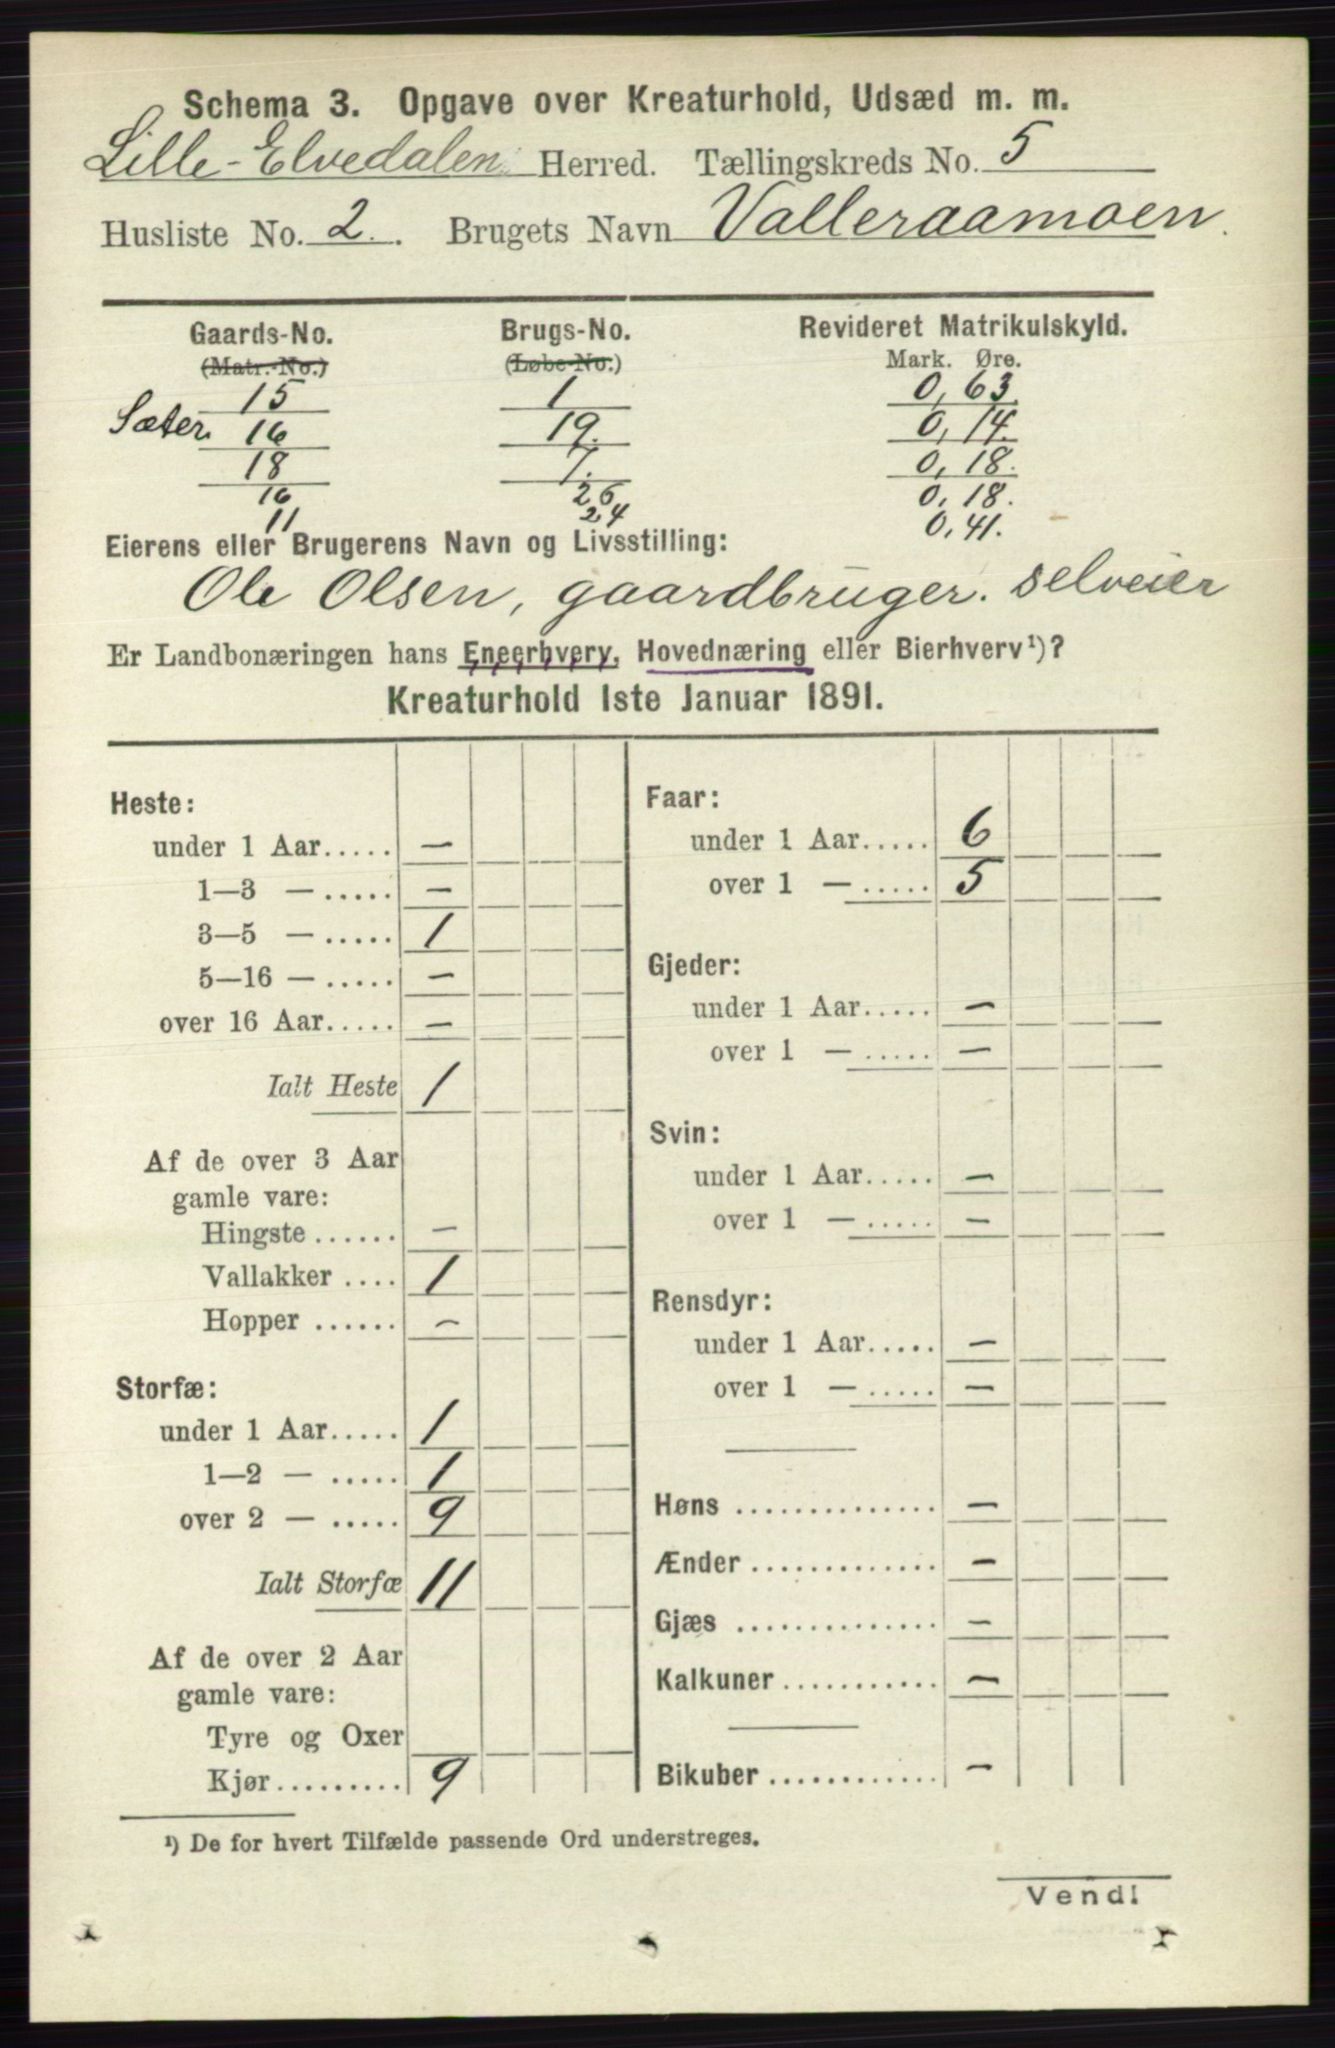 Schema 3. Opgave over Kreaturhold, Udsæd m. m.
Lille-Elvedalen Herred. Tællingskreds No. 5
Husliste No. 2. Brugets Navn Valleraamoen.
Gaards-No. Brugs-No. Revideret Matrikulskyld.
(Matr.-No.) (Løbe-No.) Mark. Øre.
15 1 0,63
Sæter. 16 19. 0,14.
18 7. 0,18.
16 26 0,18.
11 24 0,41.
Eierens eller Brugerens Navn og Livsstilling:
Ole Olsen, gaardbruger. selveier
Er Landbonæringen hans Eneerhverv, Hovednæring eller Bierhverv¹)?
Kreaturhold 1ste Januar 1891.
Heste:
under 1 Aar..... —
1—3 — ..... —
3—5 — ..... 1
5—16 — ..... —
over 16 Aar..... —
Ialt Heste 1
Af de over 3 Aar
gamle vare:
Hingste ...... —
Vallakker .... 1
Hopper ...... —
Storfæ:
under 1 Aar..... 1
1—2 — ..... 1
over 2 — ..... 9
Ialt Storfæ 11
Af de over 2 Aar
gamle vare:
Tyre og Oxer
Kjør......... 9
Faar:
under 1 Aar..... 6
over 1 — ..... 5
Gjeder:
under 1 Aar..... —
over 1 — ..... —
Svin:
under 1 Aar..... —
over 1 — ..... —
Rensdyr:
under 1 Aar..... —
over 1 — ..... —
Høns .............. —
Ænder ............. —
Gjæs .............. —
Kalkuner ........... —
Bikuber ............ —
¹) De for hvert Tilfælde passende Ord understreges.
Vend!